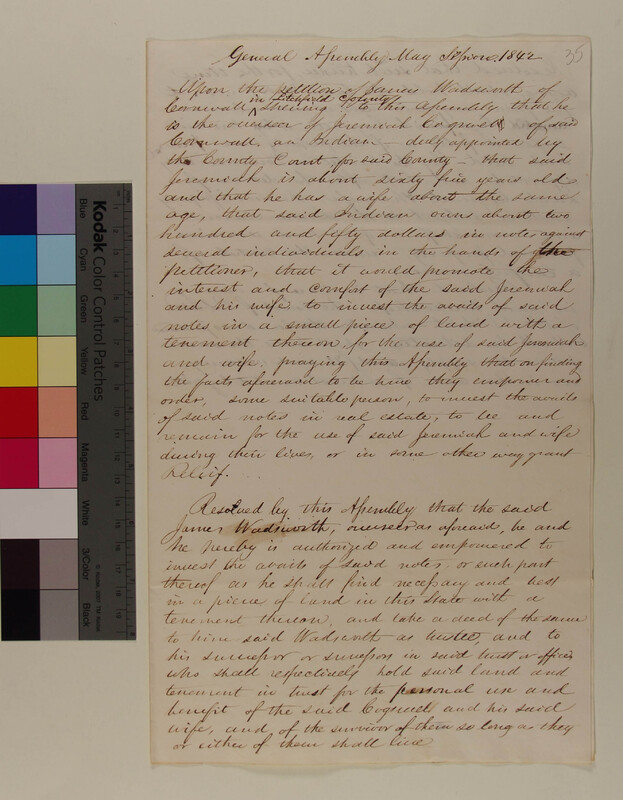 General Assembly May Session, 1842
35
Upon the petition of James Wadsworth of
Cornwall in Litchfield County shewing to this Assembly that he
is the overseer of Jeremiah Cogswell of said
Cornwall an Indian - duly appointed by
the County Court for said County - that said
Jeremiah is about sixty five years old
and that he has a wife about the same
age, that said Indian owns about two
hundred and fifty dollars in notes against
several individuals in the hands of the
petitioner, that it would promote the
interest and comfort of the said Jeremiah
and his wife to invest the avails of said
notes in a small piece of land with a
tenement thereon, for the use of said Jeremiah
and wife, praying this Assembly that on finding
the facts aforesaid to be true they empower and
order, some suitable person, to invest the avails
of said notes in real estate, to be and
remain for the use of said Jeremiah and wife
during their lives, or in some other way grant
Releif.
Resolved by this Assembly that the said
James Wadsworth, overseer as aforesaid, be and
he hereby is authorized and empowered to
invest the avails of said notes, or such part
thereof as he shall find necessary and best
in a piece of land in this State with a
tenement thereon, and take a deed of the same
to him said Wadsworth as trustee, and to
his successor or successors in said trust or office
who shall respectively hold said land and
tenement in trust for the personal use and
benefit of the said Cogswell and his said
wife, and of the survivor of them so long as they
or either of them shall live
Kodak Color Control Patches
Blue
Cyan
Green
Yellow
Red
Magenta
White
3/Color
Black